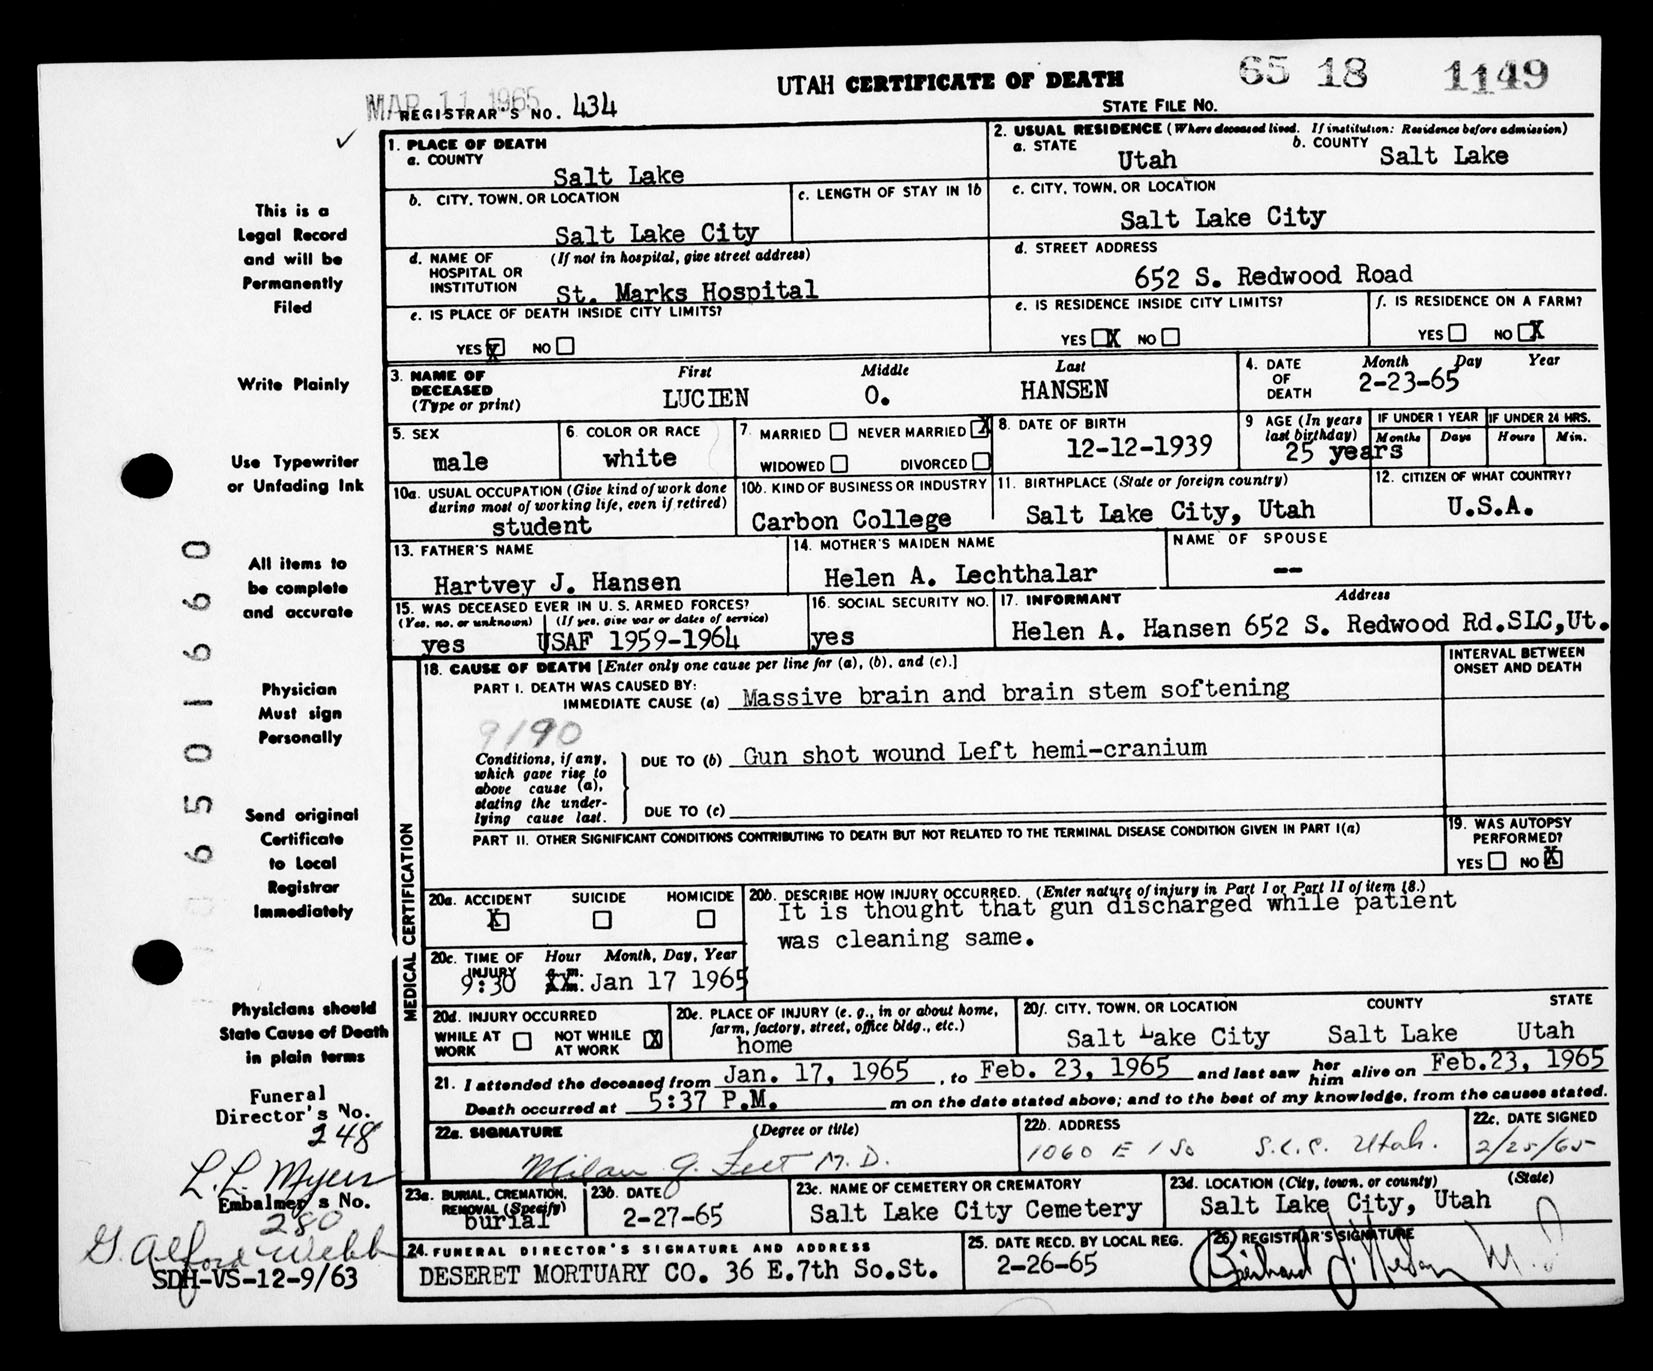 UTAH CERTIFICATE OF DEATH
65 18 1149
MAR 11 1965
REGISTRAR'S NO. 434
STATE FILE NO.
1. PLACE OF DEATH
a. COUNTY
Salt Lake
2. USUAL RESIDENCE (Where deceased lived. If institution: Residence before admission)
a. STATE Utah b. COUNTY Salt Lake
b. CITY, TOWN, OR LOCATION
Salt Lake City
c. LENGTH OF STAY IN 1b
c. CITY, TOWN, OR LOCATION
Salt Lake City
d. NAME OF HOSPITAL OR INSTITUTION (If not in hospital, give street address)
St. Marks Hospital
d. STREET ADDRESS
652 S. Redwood Road
e. IS PLACE OF DEATH INSIDE CITY LIMITS?
YES X NO
e. IS RESIDENCE INSIDE CITY LIMITS?
YES X NO
f. IS RESIDENCE ON A FARM?
YES NO X
3. NAME OF DECEASED (Type or print)
First Middle Last
LUCIEN O. HANSEN
4. DATE OF DEATH Month Day Year
2-23-65
5. SEX
male
6. COLOR OR RACE
white
7. MARRIED NEVER MARRIED X
WIDOWED DIVORCED
8. DATE OF BIRTH
12-12-1939
9 AGE (In years last birthday)
25 years
IF UNDER 1 YEAR IF UNDER 24 HRS.
Months Days Hours Min.
10a. USUAL OCCUPATION (Give kind of work done during most of working life, even if retired)
student
10b. KIND OF BUSINESS OR INDUSTRY
Carbon College
11. BIRTHPLACE (State or foreign country)
Salt Lake City, Utah
12. CITIZEN OF WHAT COUNTRY?
U.S.A.
13. FATHER'S NAME
Hartvey J. Hansen
14. MOTHER'S MAIDEN NAME
Helen A. Lechthalar
NAME OF SPOUSE
--
15. WAS DECEASED EVER IN U. S. ARMED FORCES?
(Yes, no, or unknown) (If yes, give war or dates of service)
yes USAF 1959-1964
16. SOCIAL SECURITY NO.
yes
17. INFORMANT Address
Helen A. Hansen 652 S. Redwood Rd.SLC,Ut.
MEDICAL CERTIFICATION
18. CAUSE OF DEATH [Enter only one cause per line for (a), (b), and (c).]
INTERVAL BETWEEN ONSET AND DEATH
PART I. DEATH WAS CAUSED BY:
IMMEDIATE CAUSE (a) Massive brain and brain stem softening
9190
Conditions, if any, which gave rise to above cause (a), stating the underlying cause last.
DUE TO (b) Gun shot wound Left hemi-cranium
DUE TO (c)
PART II. OTHER SIGNIFICANT CONDITIONS CONTRIBUTING TO DEATH BUT NOT RELATED TO THE TERMINAL DISEASE CONDITION GIVEN IN PART I(a)
19. WAS AUTOPSY PERFORMED?
YES NO X
20a. ACCIDENT SUICIDE HOMICIDE
X
20b. DESCRIBE HOW INJURY OCCURRED. (Enter nature of injury in Part I or Part II of item 18.)
It is thought that gun discharged while patient
was cleaning same.
20c. TIME OF INJURY Hour Month, Day, Year
9:30 Jan 17 1965
20d. INJURY OCCURRED
WHILE AT WORK NOT WHILE AT WORK X
20e. PLACE OF INJURY (e. g., in or about home, farm, factory, street, office bldg., etc.)
home
20f. CITY, TOWN, OR LOCATION COUNTY STATE
Salt Lake City Salt Lake Utah
21. I attended the deceased from Jan. 17, 1965, to Feb. 23, 1965 and last saw her him alive on Feb.23, 1965
Death occurred at 5:37 P.M. m on the date stated above; and to the best of my knowledge, from the causes stated.
22a. SIGNATURE (Degree or title)
M.D.
22b. ADDRESS
1060 E 1 So S.L.C. Utah.
22c. DATE SIGNED
2/25/65
23a. BURIAL, CREMATION, REMOVAL (Specify)
burial
23b. DATE
2-27-65
23c. NAME OF CEMETERY OR CREMATORY
Salt Lake City Cemetery
23d. LOCATION (City, town, or county) (State)
Salt Lake City, Utah
24. FUNERAL DIRECTOR'S SIGNATURE AND ADDRESS
DESERET MORTUARY CO. 36 E.7th So.St.
25. DATE RECD. BY LOCAL REG.
2-26-65
26. REGISTRAR'S SIGNATURE
This is a
Legal Record
and will be
Permanently
Filed
Write Plainly
Use Typewriter
or Unfading Ink
All items to
be complete
and accurate
Physician
Must sign
Personally
Send original
Certificate
to Local
Registrar
Immediately
Physicians should
State Cause of Death
in plain terms
Funeral
Director's No.
248
L. L. Myers
Embalmer's No.
280
G. Alford Webb
SDH-VS-12-9/63
6501660